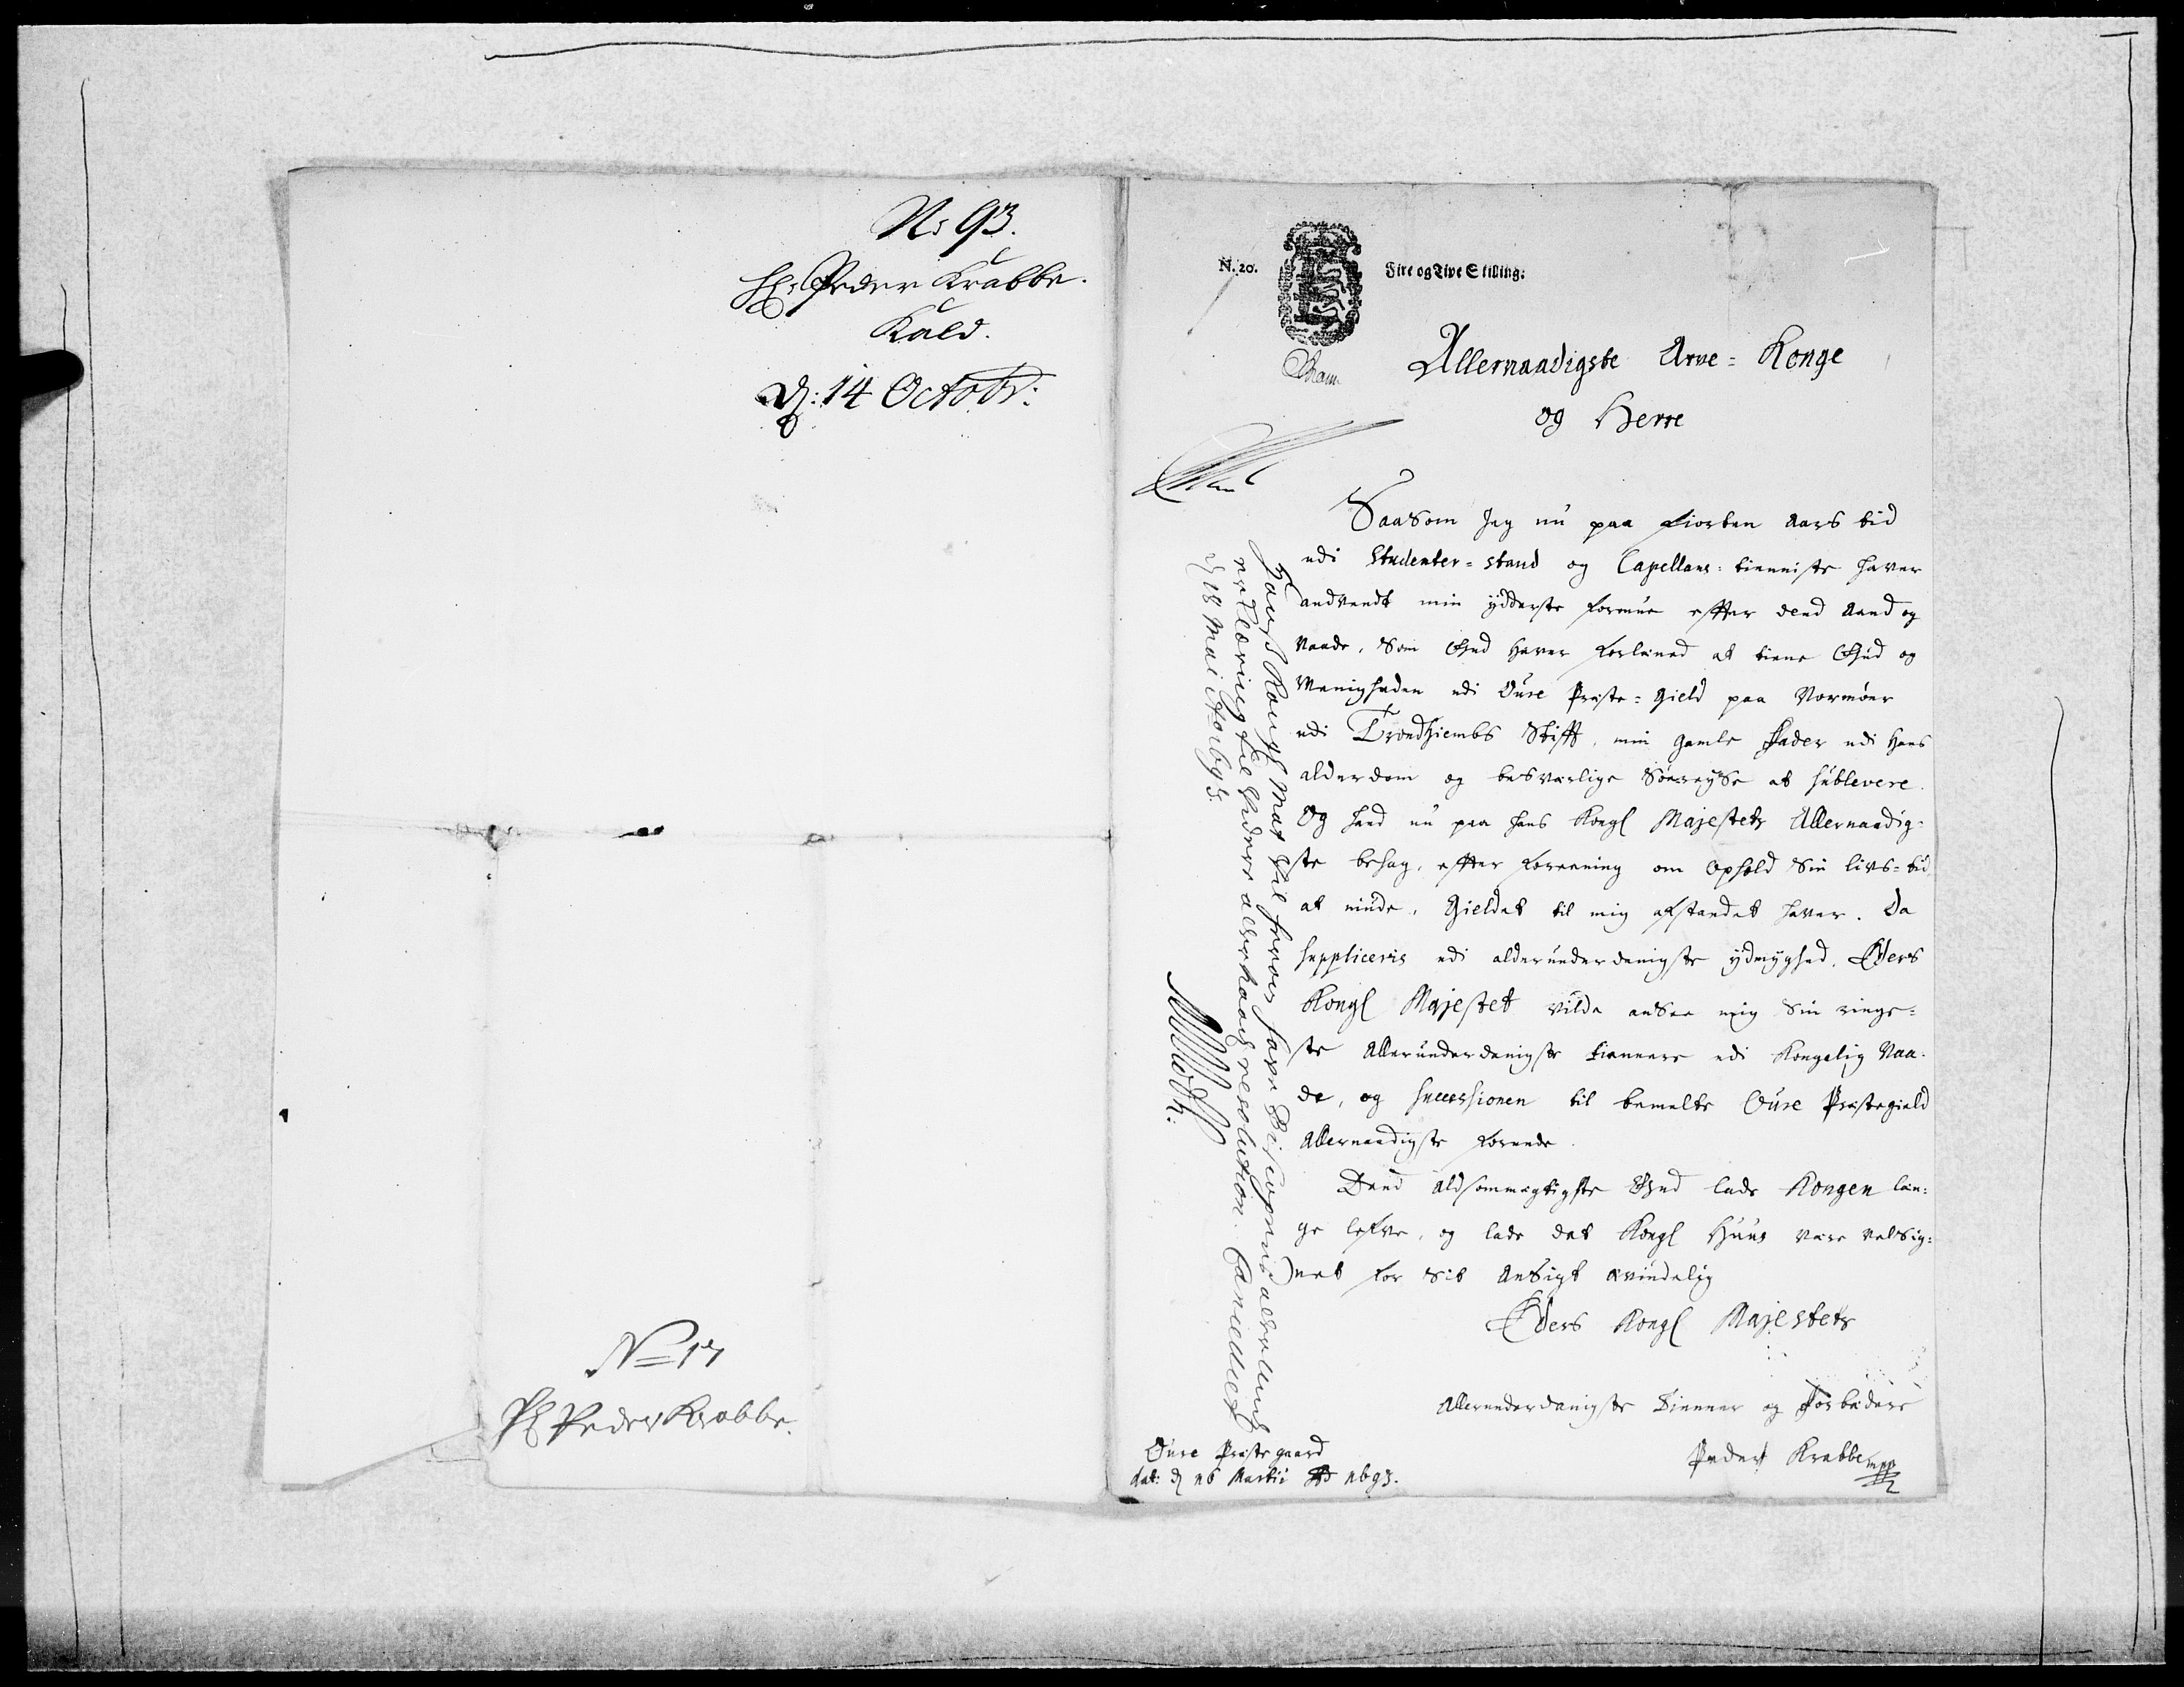 No 93.
Hr: Peder Krabbe.
Kald.
d: 14 Octobr:
No 17
Hr Peder Krabbe.
N. 20.
Fire og Tive Skilling:
Allernaadigste Arve-Konge
og Herre
Saasom Jeg nu paa fiorten aars tid
udi Studenter-stand og Capellans-tienniste hafver
andvendt min yderste formue effter dend Aand og
Naade, Som Gud hafver forlæned at tiene Gud og
Menigheden udi Oure Præste-gield paa Normøer
udi Trondhiembs Stifft, min gamle Fader udi hans
alderdom og besværlige Søereyse at sublevere.
Og hand nu paa hans Kongl Majestets Allernaadig-
ste behag, effter foreening om Ophold Sin livs-tid
at niude, Gieldet til mig afstandet hafver. Da
suppliceris udi allerunderdanigste ydmyghed, Eders
Kongl Majestet vilde ansee mig Sin ringe-
ste Allerunderdanigste tiennere udi Kongelig Naa-
de, og successionen til bemelte Oure Præstegield
Allernaadigste forunde.
Dend aldsommægtigste Gud lade Kongen læn-
ge lefve, og lade det Kongl Huus være velsig-
net for Sit Ansigt ævindelig
Eders Kongl Majestets
Allerunderdanigste Tienner og Forbedere
Peder Krabbe mpp
Oure Præstegaard
dat: d 16 Martii Ao 1693.
Hans Kongl Mat vil herover hafve Biscopens allerund
erklæring til videre allernaad resolution. Cancelliet
d 18 Maii Ao 1693.